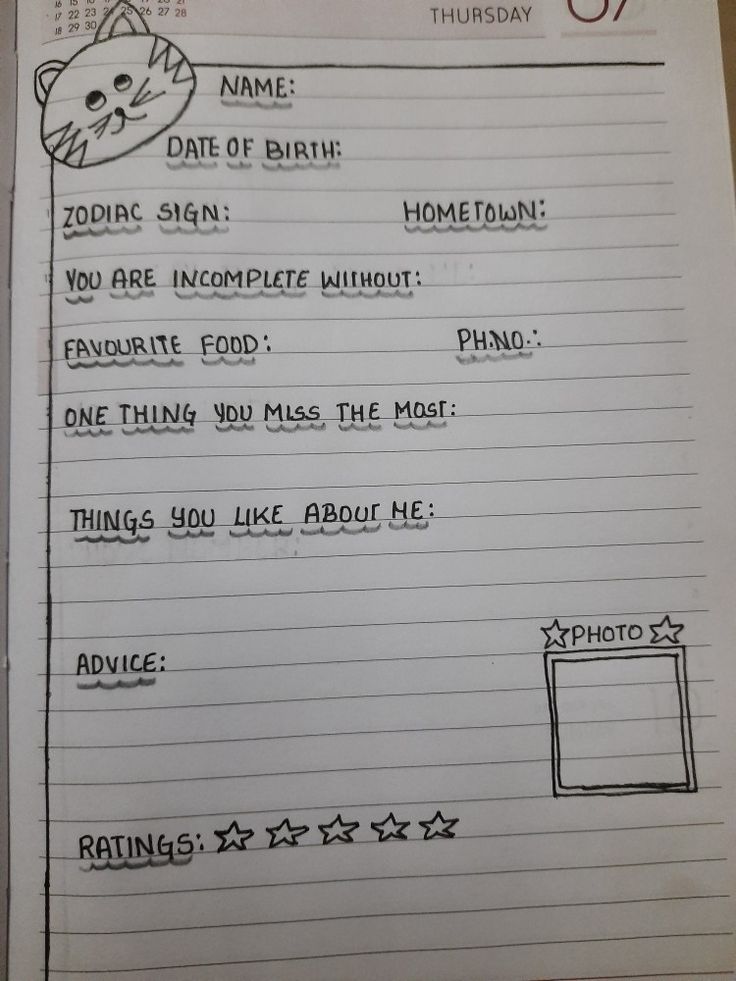 16 15 16
17 22 23 24 25 26 27 28
18 29 30
THURSDAY
NAME:
DATE OF BIRTH:
ZODIAC SIGN: HOMETOWN:
YOU ARE INCOMPLETE WITHOUT:
FAVOURITE FOOD: PH.NO.:
ONE THING YOU MISS THE MOST:
THINGS YOU LIKE ABOUT ME:
PHOTO
ADVICE:
RATINGS: